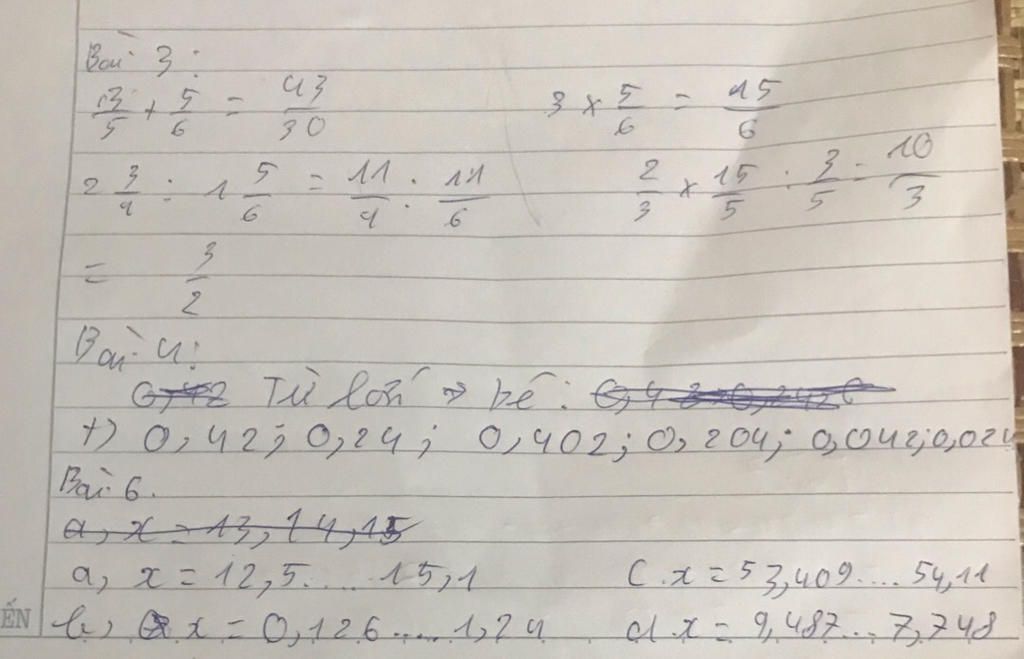 Bài 3:
3/5 + 5/6 = 43/30 3 × 5/6 = 15/6
2 3/4 : 1 5/6 = 11/4 : 11/6 2/3 × 15/5 : 3/5 = 10/3
= 3/2
Bài 4:
Từ lớn => bé:
+) 0,42; 0,24; 0,402; 0,204; 0,042; 0,024
Bài 6.
a, x = 13, 14, 15
a, x = 12,5.... 15,1 C. x = 53,409.... 54,11
b, x = 0,126..... 1,24 d. x = 9,487... 7,748
ẾN